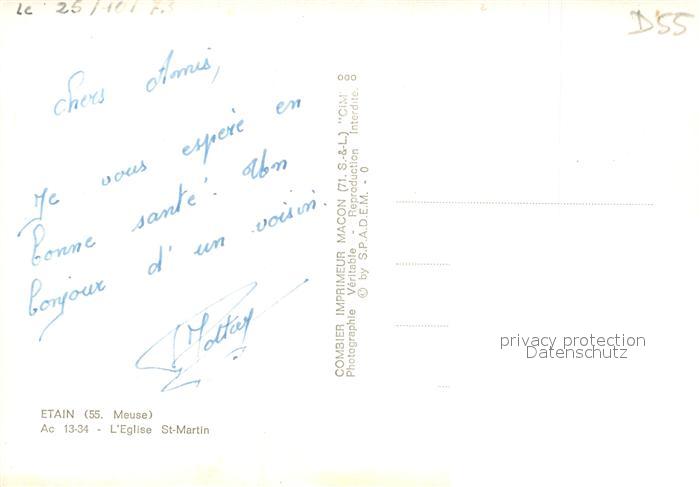 le 25/10/73
D55
chers Amis,
Je vous espère en
bonne santé. Un
bonjour d'un voisin.
ETAIN (55. Meuse)
Ac 13-34 - L'Eglise St-Martin
COMBIER IMPRIMEUR MACON (71. S.-&-L.) "CIM"
Photographie Véritable - Reproduction Interdite.
© by S.P.A.D.E.M. - 0
privacy protection
Datenschutz